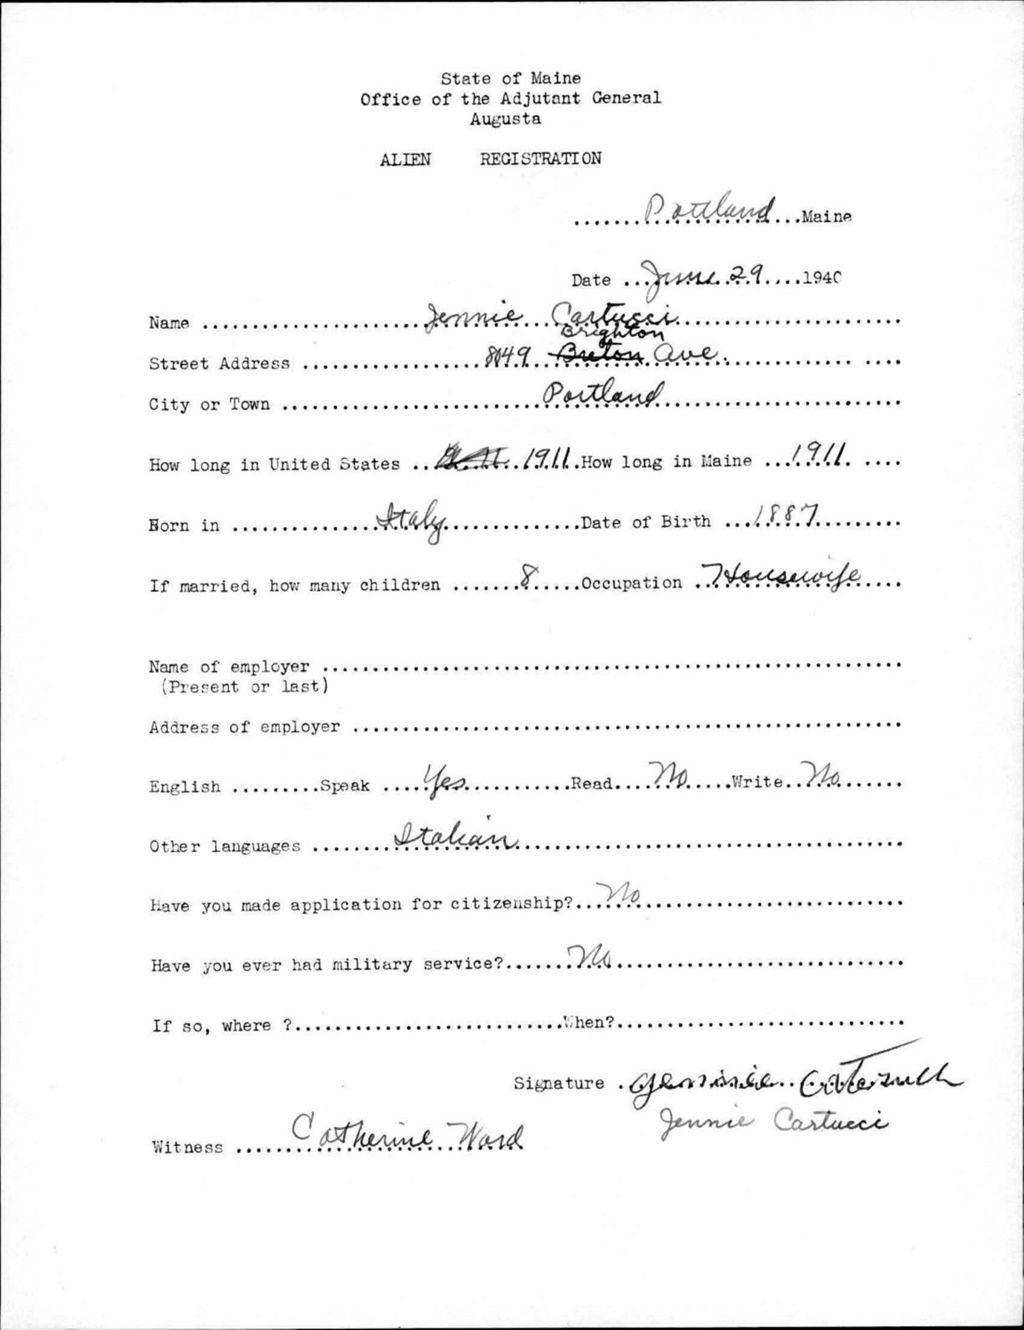 State of Maine
Office of the Adjutant General
Augusta
ALIEN REGISTRATION
.......Portland...Maine
Date ...June 29....1940
Name ......Jennie Cartucci......
Brighton
Street Address ......8049 Breton Ave.......
City or Town ......Portland......
How long in United States ..1911.How long in Maine ...1911. ....
Born in ......Italy......Date of Birth ...1887.........
If married, how many children .......8.....Occupation ..Housewife.....
Name of employer ......
(Present or last)
Address of employer ......
English .........Speak ....Yes...........Read....No.....Write..No.......
Other languages ........Italian......
Have you made application for citizenship?...No......
Have you ever had military service?.......No......
If so, where ?......When?......
Signature .Jennie
Jennie Cartucci
Witness ......Catherine Ward